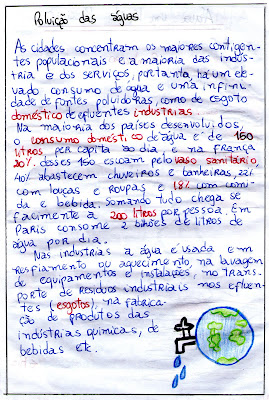 Poluição das águas
As cidades concentram os maiores contigen-
tes populacionais e a maioria das indús-
tria e dos serviços, portanta, há um ele-
vado consumo de água e uma infini-
dade de fontes poluidoras, como de esgoto
doméstico de efluentes industriais.
Na maioria dos países desenvolvidos,
o consumo doméstico de água é de 150
litros per capita ao dia e na França
30% desses 150 escoam pelo vaso sanitário,
40% abastecem chuveiros e banheiras, 22%
com louças e roupas e 18% com comi-
da e bebida. Somando tudo chega se
facilmente a 200 litros por pessoa. Em
Paris consome 2 bihões de litros de
água por dia.
Nas industrias a água é usada em
resfiamento ou aquecimento, na lavagem
de equipamentos e instalações, no trans.
porte de resíduos industriais nos efluen-
tes (esgotos), na fabrica-
ção de produtos das
indústrias quimicas, de
bebidas etc.